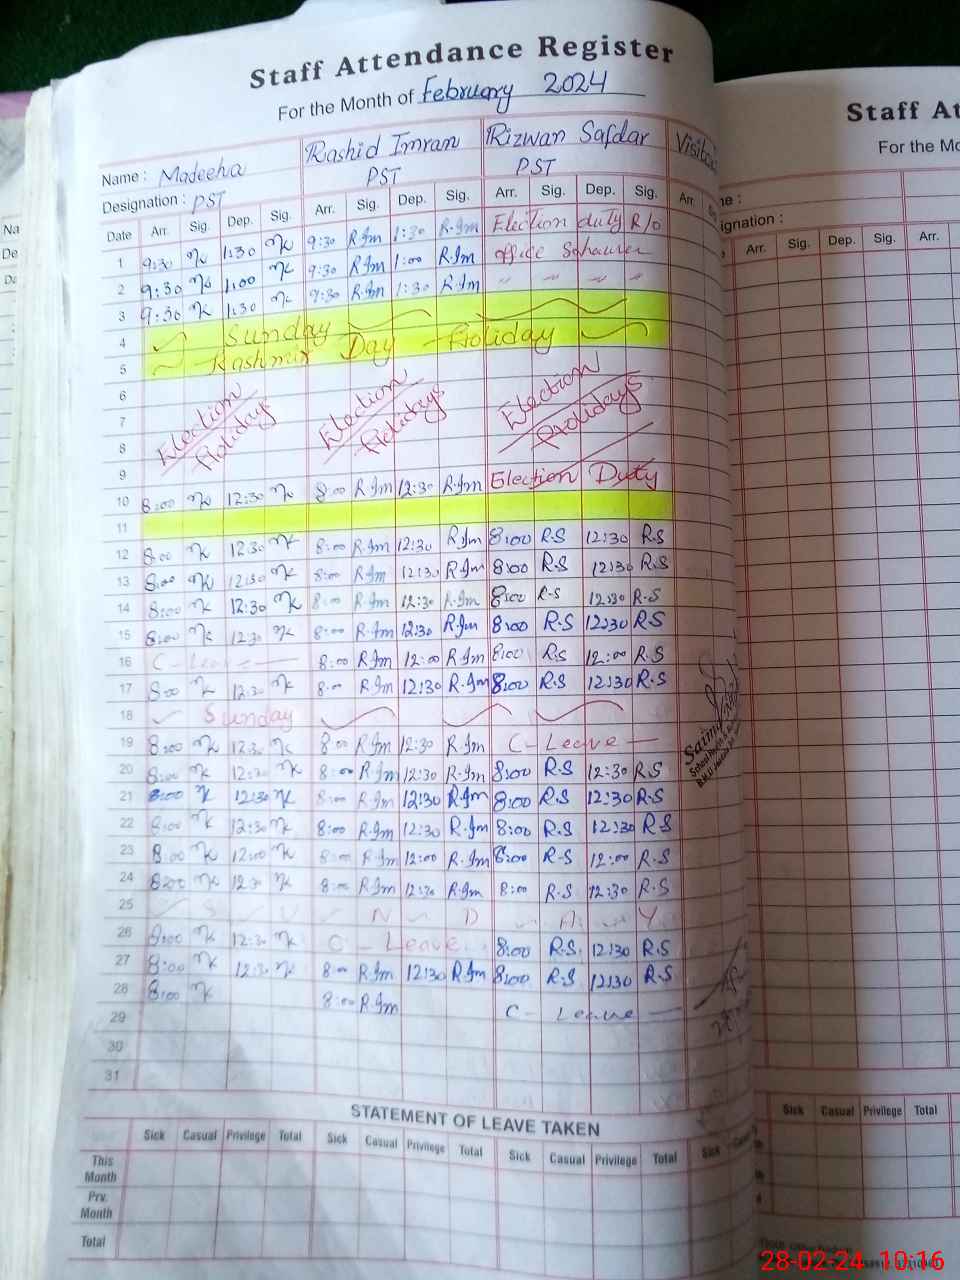 Staff Attendance Register
For the Month of February 2024
Name : Madeeha Rashid Imran Rizwan Safdar
Designation : PST PST PST
Date Arr. Sig. Dep. Sig. Arr. Sig. Dep. Sig. Arr. Sig. Dep. Sig. Arr
1 9:30 1:30 9:30 R.Im 1:30 R.Im Election duty R/o
2 9:30 1:00 9:30 R.Im 1:00 R.Im office
3 9:30 1:30 9:30 R.Im 1:30 R.Im " " " "
4 Sunday
5 Kashmir Day Holiday
6
7 Election Holidays Election Holidays Election Holidays
8
9
10 8:00 12:30 8:00 R.Im 12:30 R.Im Election Duty
11
12 8:00 12:30 8:00 R.Im 12:30 R.Im 8:00 R.S 12:30 R.S
13 8:00 12:30 8:00 R.Im 12:30 R.Im 8:00 R.S 12:30 R.S
14 8:00 12:30 8:00 R.Im 12:30 R.Im 8:00 R.S 12:30 R.S
15 8:00 12:30 8:00 R.Im 12:30 R.Im 8:00 R.S 12:30 R.S
16 C-Leave 8:00 R.Im 12:00 R.Im 8:00 R.S 12:00 R.S
17 8:00 12:30 8:00 R.Im 12:30 R.Im 8:00 R.S 12:30 R.S
18 Sunday
19 8:00 12:30 8:00 R.Im 12:30 R.Im C-Leave
20 8:00 12:30 8:00 R.Im 12:30 R.Im 8:00 R.S 12:30 R.S
21 8:00 12:30 8:00 R.Im 12:30 R.Im 8:00 R.S 12:30 R.S
22 8:00 12:30 8:00 R.Im 12:30 R.Im 8:00 R.S 12:30 R.S
23 8:00 12:00 8:00 R.Im 12:00 R.Im 8:00 R.S 12:00 R.S
24 8:00 12:30 8:00 R.Im 12:30 R.Im 8:00 R.S 12:30 R.S
25 S U N D A Y
26 8:00 12:30 C-Leave 8:00 R.S. 12:30 R.S
27 8:00 12:30 8:00 R.Im 12:30 R.Im 8:00 R.S 12:30 R.S
28 8:00 8:00 R.Im C-Leave
29
30
31
STATEMENT OF LEAVE TAKEN
Sick Casual Privilege Total Sick Casual Privilege Total Sick Casual Privilege Total Sick
This Month
Prv. Month
Total
Staff At
For the Mo
Arr. Sig. Dep. Sig. Arr.
Sick Casual Privilege Total
28-02-24 10:16